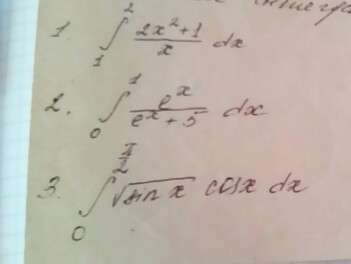 1. ∫₁² (2x²+1)/x dx
2. ∫₀¹ eˣ/(eˣ+5) dx
3. ∫₀^(π/2) √(sin x) cosx dx